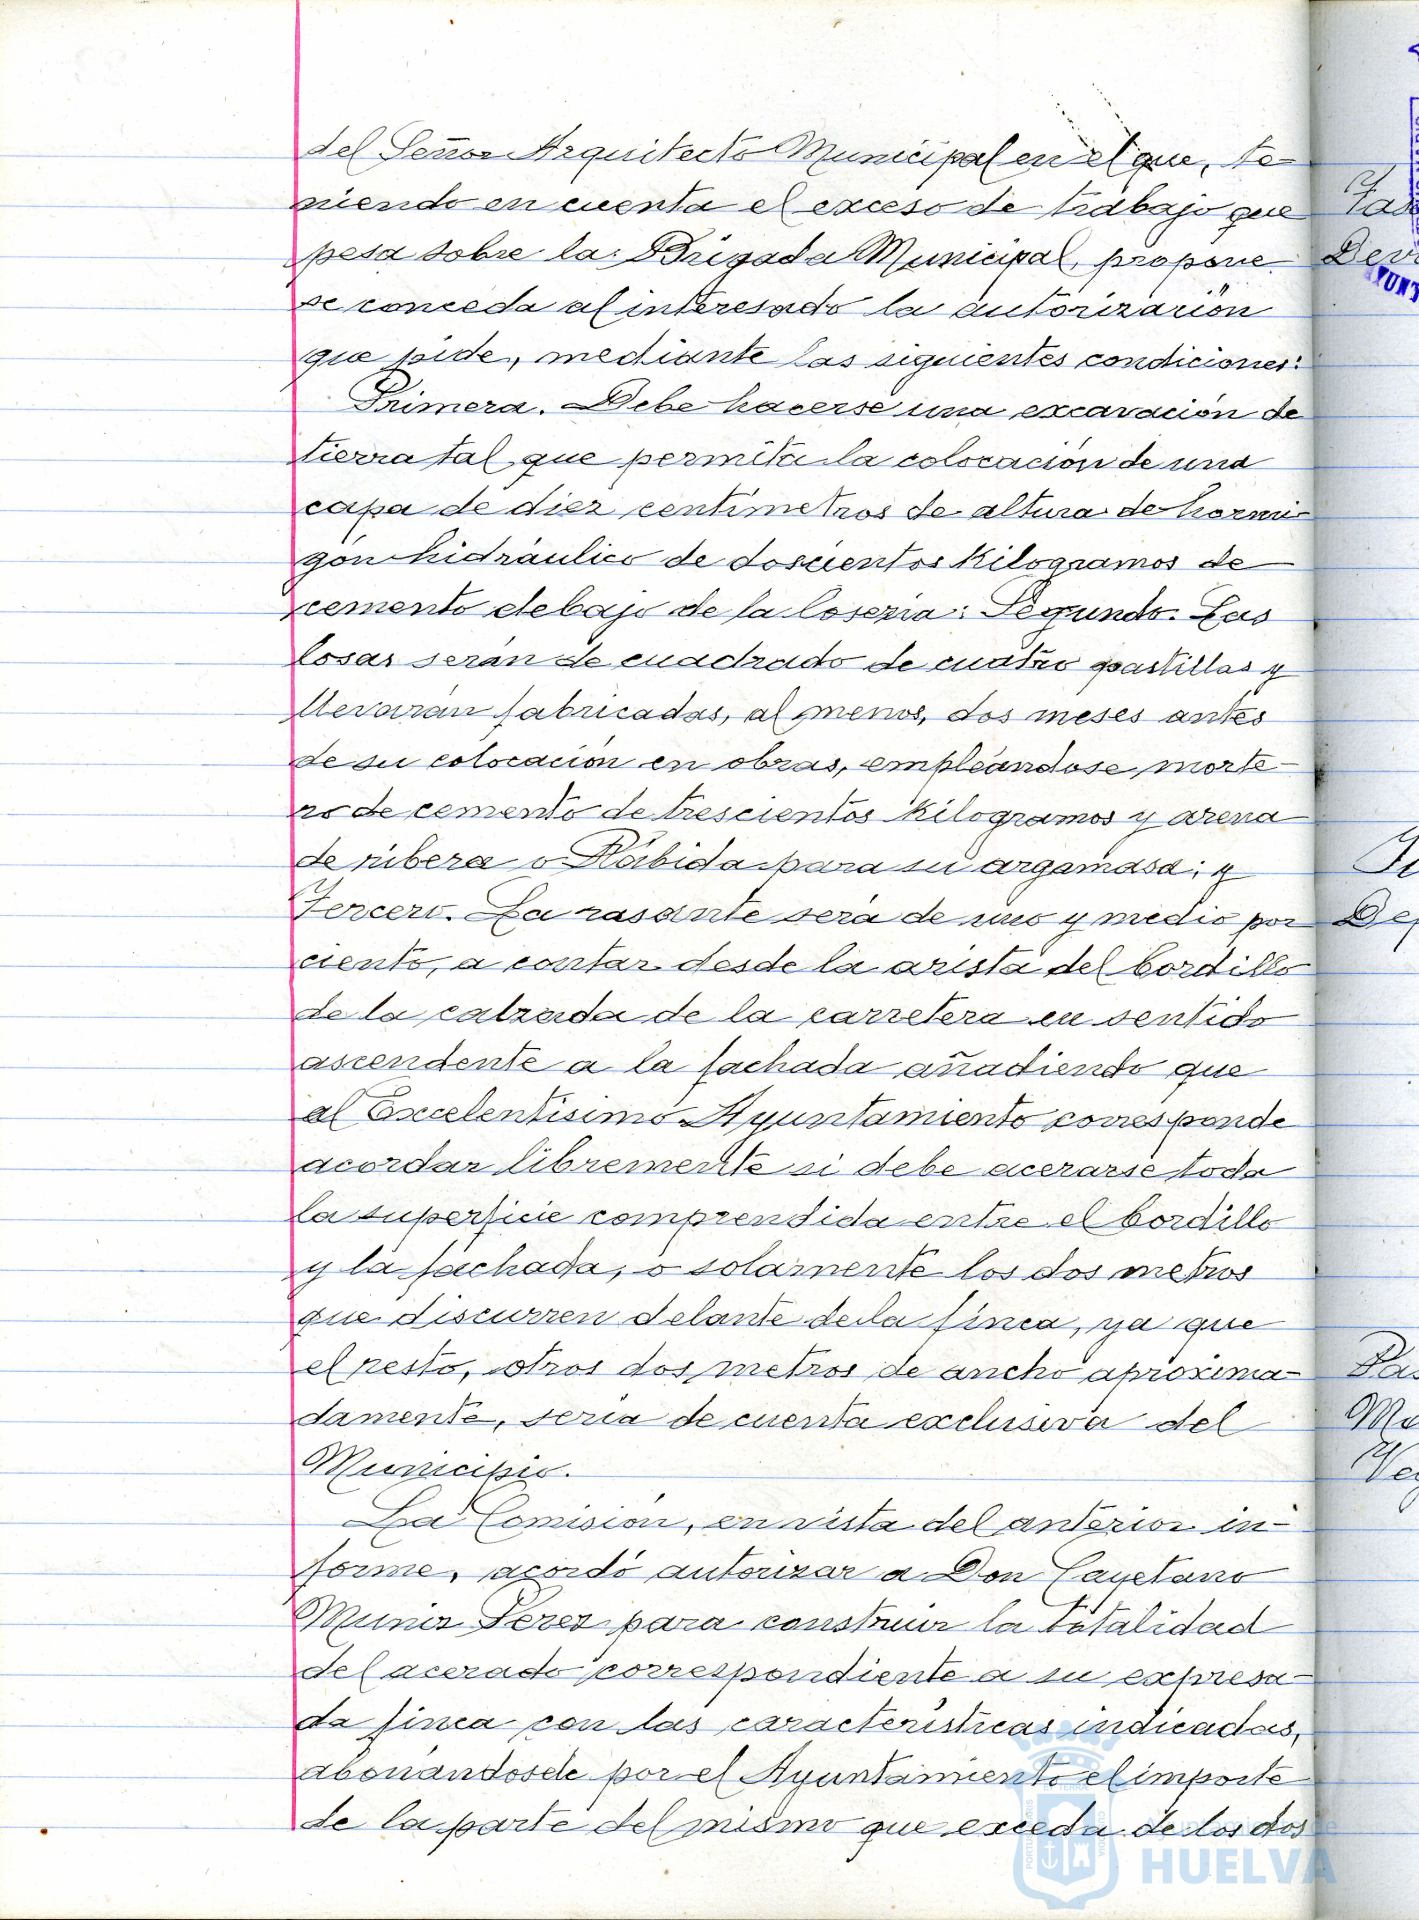 del Señor Arquitecto Municipal en el que, te-
niendo en cuenta el exceso de trabajo que
pesa sobre la Brigada Municipal, propone
se conceda al interesado la autorización
que pide, mediante las siguientes condiciones:
Primera. Debe hacerse una excavación de
tierra tal que permita la colocación de una
capa de diez centímetros de altura de hormi-
gón hidráulico de doscientos Kilogramos de
cemento debajo de la losería: Segundo. Las
losas serán de cuadrado de cuatro pastillas y
llevarán fabricadas, al menos, dos meses antes
de su colocación en obras, empleándose morte-
ro de cemento de trescientos Kilogramos y arena
de ribera o Rábida para su argamasa; y
Tercero. La rasante será de uno y medio por
ciento, a contar desde la arista del bordillo
de la calzada de la carretera en sentido
ascendente a la fachada añadiendo que
al Excelentísimo Ayuntamiento corresponde
acordar libremente si debe acerarse toda
la superficie comprendida entre el bordillo
y la fachada, o solamente los dos metros
que discurren delante de la finca, ya que
el resto, otros dos metros de ancho aproxima-
damente, sería de cuenta exclusiva del
Municipio.
La Comisión, en vista del anterior in-
forme, acordó autorizar a Don Cayetano
Muniz Perez para construir la totalidad
del acerado correspondiente a su expresa-
da finca con las características indicadas,
abonándosele por el Ayuntamiento el importe
de la parte del mismo que exceda de los dos
HUELVA